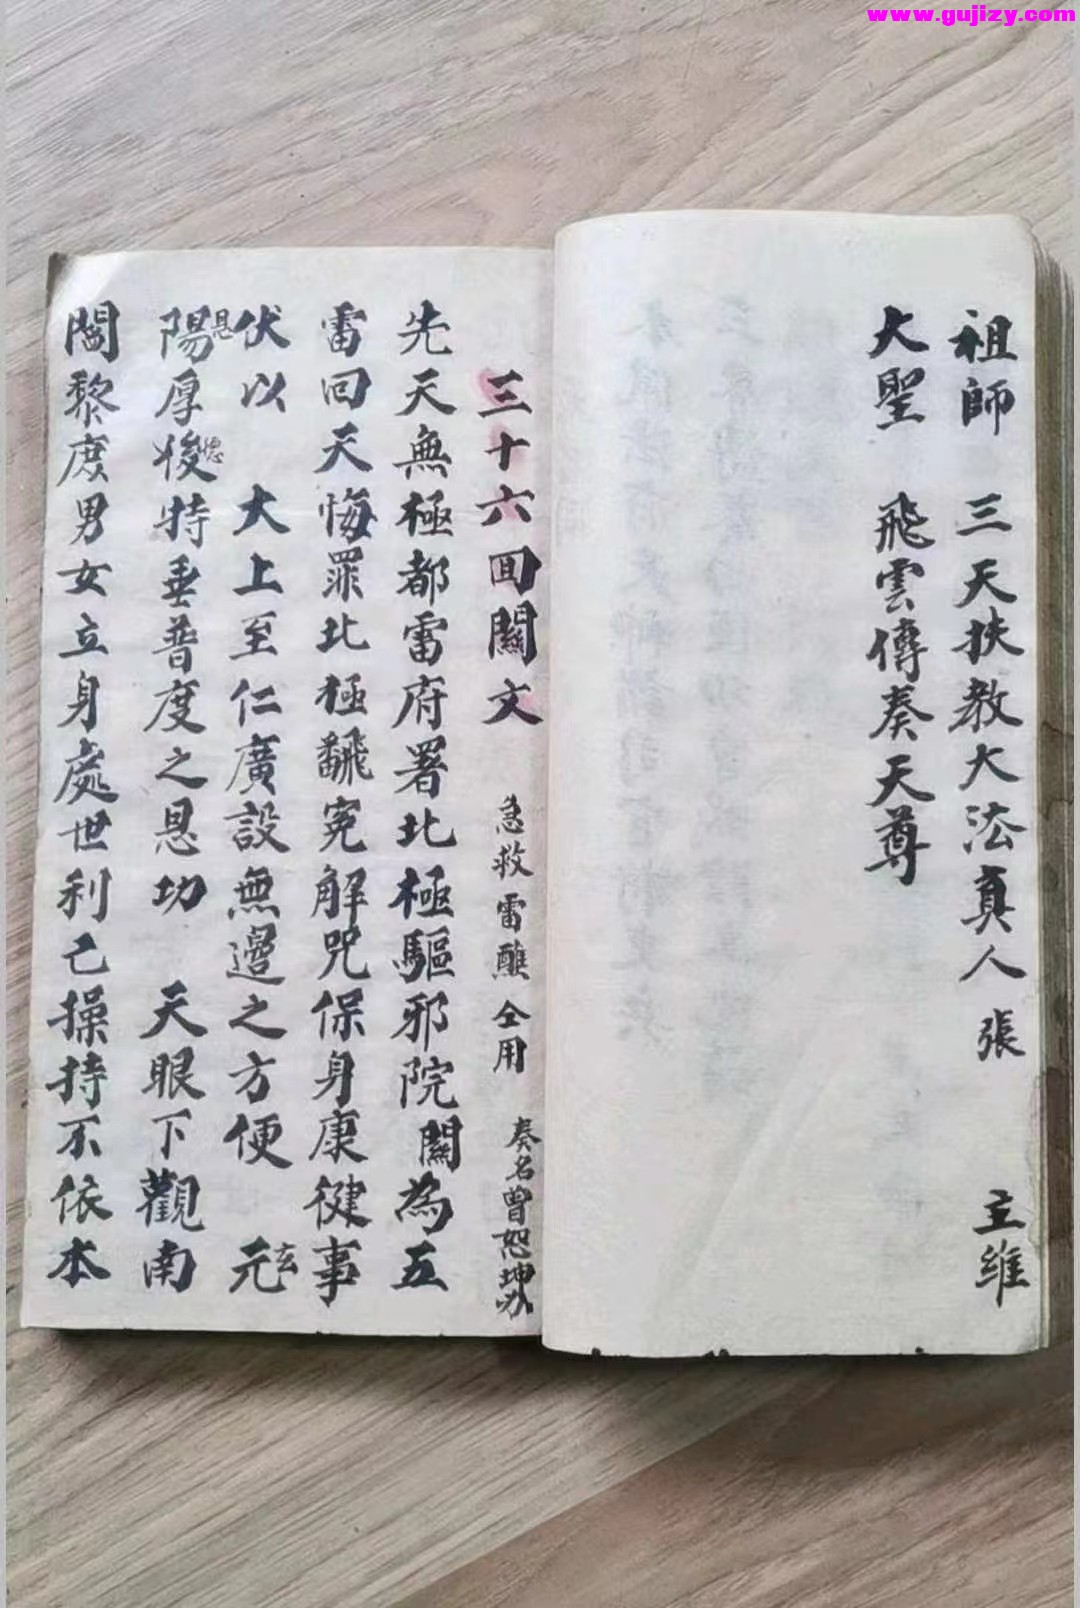 www.gujizy.com
祖師 三天扶教大法真人 張 主維
大聖 飛雲傳奏天尊
三十六回關文 急救雷醮仝用 奏名曾恕坤
先天無極都雷府署北極驅邪院 關為五
雷回天悔罪北極飜冤解咒保身康健事
伏以 大上至仁廣設無邊之方便 元玄
陽恩厚後德特垂普度之恩功 天眼下觀南
閻黎庶男女立身處世利己操持不依本